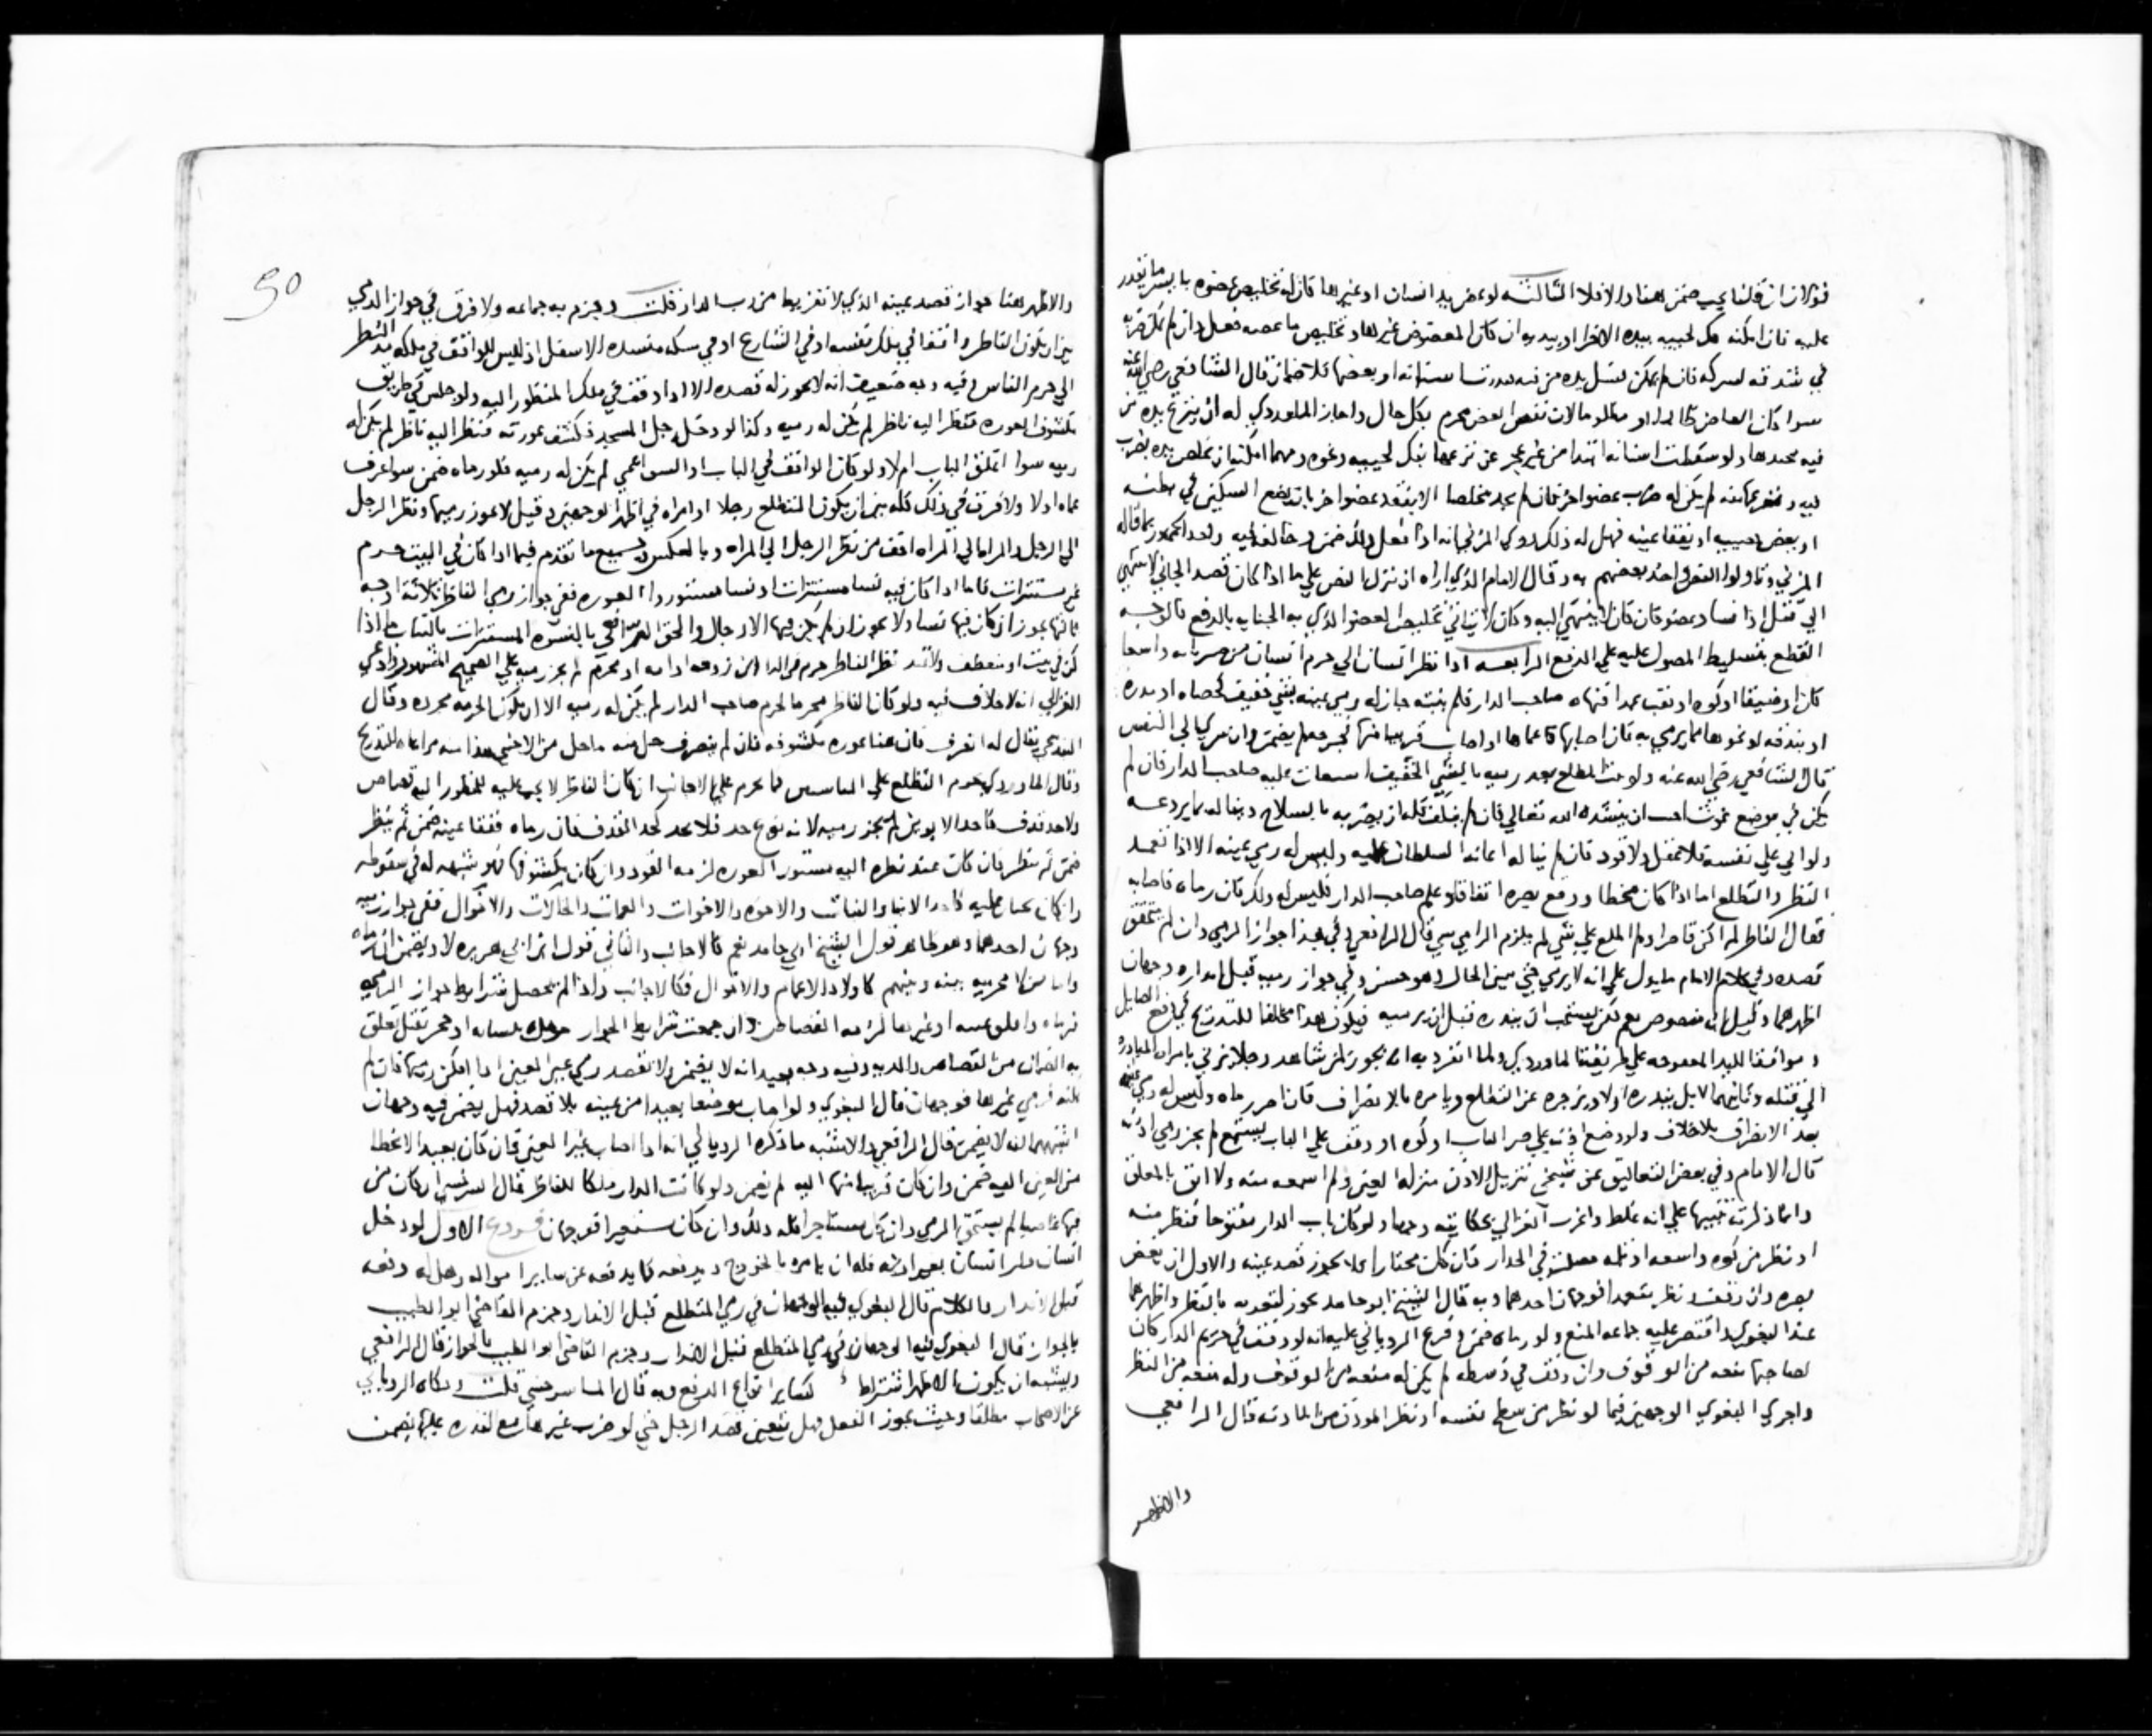 قولان ان قلنا يجب ضمن هنا والا فلا الثالثه لو عض يد انسان او غيرها كان له تخليص عضوه بايسر ما يقدر
عليه فان امكنه فك لحييه بيده الاخرا او بيديه ان كان المعضوض غيرها وتخليص ما عضه فعل وان لم يمكن ضربه
في شدقه ليتركه فان لم يمكن فسل يده من فيه فندرت اسنانه او بعضها فلا ضمان قال الشافعي رضي الله عنه
سوا كان العاض ظالما او مظلوما لان نفس العض محرم بكل حال واجاز الماوردي له ان ينزع يده من
فيه فيجذبها ولو سقطت اسنانه ابتدا من غير عجز عن نزعها بفك لحييه ونحوه ومهما امكنه ان يتخلص بيده بضرب
فيه لم يكن له ضرب عضو اخر فان لم يجد مخلصا الا بقصد عضو اخر بان يضع السكين في بطنه
او بعض او يفقا عينه فهل له ذلك روى المزني انه اذا فعل ذلك ضمن وخالفه فيه واخذ الجمهور بما قاله
المزني وتاولوا النص واخذ بعضهم به وقال الامام الذي اراه ان تنزيل النص على ما اذا كان قصد الجاني لا ينتهي
الى قتل او فساد عضو فان كان ينتهي اليه وكان لا يتاتى تخليص العضو الذي به الجنايه بالدفع فالوجه
القطع بتسليط المصول عليه على الدفع الرابعه اذا نظر انسان الى حرم انسان من واسعا
كان او ضيقا او كوه او نقب عمدا فنهاه صاحب الدار فلم ينته جاز له رمي عينه بشي خفيف كحصاه او مدره
او بندقه او نحوها مما يرمي به فان اصابها فاعماها او اصاب قريبا منها فجرحه لم يضمن وان سرى الى النفس
قال الشافعي رضي الله عنه ولو ثبت المطلع بعد رميه بالشي الخفيف استغاث عليه صاحب الدار فان لم
يكن في موضع غوث احب ان ينشده الله تعالى فان لم يكف فله ان يضربه بالسلاح وينا له بما يردعه
ولو اتى على نفسه فلا عقل ولا قود فان لم ينا له اعانه السلطان عليه وليس له رمي عينه الا اذا تعمد
النظر والتطلع اما اذا كان مخطا او وقع بصره اتفاقا وعلم صاحب الدار فليس له ذلك فان رماه فاصابه
فقال الناظر لم اكن قاصدا ولم اطلع على شي لم يلزم الرامي شي قال الرافعي وفي هذا جواز الرمي وان لم يتحقق
قصده وفي كلام الامام ما يدل على انه لا يرمي حتى يبين الحال وهو حسن وفي جواز رميه قبل انذاره وجهان
اظهرهما وقيل انه منصوص نعم لكن يستحب ان ينذره قبل ان يرميه فيكون هذا مخالفا للتدريج في دفع الصايل
وموافقا لليد المعضوضه على طريقه الماوردي ولما انفرد به انه يجوز لمن شاهد رجلا يزني بامراه المبادره
الى قتله وثانيهما لا بل ينذره اولا ويزجره عن التطلع ويامره بالانصراف فان اصر رماه وليس له رمي عينه
بعد الانصراف بلا خلاف ولو وضع اذنه على صير الباب او كوه او وقف على الباب يستمع لم يجز رمي اذنه
قال الامام وفي بعض التعاليق عن شيخي تنزيل الاذن منزله العين ولم اسمعه منه ولا اثق بالمعلق
وانما ذكرته تنبيها على انه غلط واغرب الغزالي بحكايته وجها ولو كان باب الدار مفتوحا فنظر منه
او نظر من كوه واسعه او ثلمه حصلت في الجدار فان كان مجتازا لا يجوز قصد عينه والاولى ان يغض
بصره وان وقف ونظر متعمدا فوجهان احدهما وبه قال الشيخ ابو حامد يجوز لتعديه بالنظر واظهرهما
عند البغوي واقتصر عليه جماعه المنع ولو رماه ضمن وفرع الروياني عليه انه لو وقف في حريم الدار كان
لصاحبها منعه من الوقوف وان وقف في وسطه لم يكن له منعه من الوقوف وله منعه من النظر
واجري البغوي الوجهين فيما لو نظر من سطح نفسه او نظر الموذن من الماذنه قال الرافعي
والاظهر
50
والاظهر هنا جواز قصد عينه الذي لا تفريط من رب الدار قلت وجزم به جماعه ولا فرق في جواز الرمي
بين ان يكون الناظر واقفا في ملك نفسه او في الشارع او في سكه منسده الاسفل اذ ليس للواقف في ملكه مد النظر
الى حرم الناس وفيه وجه ضعيف انه لا يجوز له قصده الا اذا وقف في ملك المنظور اليه ولو جلس في طريق
مكشوف العوره فنظر اليه ناظر لم يكن له رميه وكذا لو دخل رجل المسجد وكشف عورته فنظر اليه ناظر لم يكن له
رميه سوا اغلق الباب ام لا ولو كان الواقف في الباب اعمى لم يكن له رميه فلو رماه ضمن سوا عرف
عماه او لا ولا فرق في ذلك كله بين ان يكون المتطلع رجلا او امراه في اظهر الوجهين وقيل لا يجوز رميها ونظر الرجل
الى الرجل والمراه الى المراه اخف من نظر الرجل الى المراه وبالعكس جميع ما تقدم فيما اذا كان في البيت حرم
غير مستترات فاما اذا كان فيه نسا مستترات او نسا مستوروا العوره ففي جواز رمي الناظر ثلاثه اوجه
ثالثها يجوز ان كان فيها نسا ولا يجوز ان لم يكن فيها الا رجال والحق السرخسي بالنسوه المستترات بالثياب ما اذا
كن في بيت او منعطف ولا نظر الناظر حرم في الدار زوجه او امه او محرم لم يجز رميه على الصحيح المشهور وادعى
الغزالي انه لا خلاف فيه ولو كان الناظر محرما لحرم صاحب الدار لم يكن له رميه الا ان يكون الحرمه مجرده وقال
يقال له انصرف فان هنا عوره مكشوفه فان لم ينصرف حل منه ما حل من الاجنبي مراعاه للتدريج
وقال الماوردي يحرم التطلع على كما يحرم على الاجانب ان كان الناظر لا يجب عليه للمنظور اليه قصاص
ولا حد قذف كاحد الابوين لم يجز رميه لانه نوع حد فلا يحد كحد القذف فان رماه ففقا عينه ضمن ثم ينظر
فان كان عند نظره اليه مستور العوره لزمه القود وان كان مكشوفها فهو شبهه له في سقوطه
وان كان عليه كالابنا والبنات والاخوه والاخوات والعمات والخالات والاخوال ففي جواز رميه
وجهان احدهما وهو ظاهر قول الشيخ ابي حامد نعم كالاجانب والثاني قول ابن ابي هريره لا ويضمن ان رماه
واما من لا محرميه بينه وبينهم كاولاد الاعمام والاخوال فكالاجانب واذا لم تحصل شرايط جواز الرمي
فرماه واتلف عينه او غيرها لزمه القصاص وان جمعت شرايط الجواز بنشابه او حجر ثقيل تعلق
به الضمان من القصاص والديه وفيه وجه بعيد انه لا يضمن ولا يقصد رمي غير العين اذا امكن رميها فان لم
يمكنه فرمي غيرها فوجهان قال البغوي ولو اصاب موضعا بعيدا من عينه بلا قصد فهل يضمن فيه وجهان
اشبههما انه لا يضمن قال الرافعي والاشبه ما ذكره الروياني انه اذا اصاب غير العين فان كان بعيدا لا يخطا
من العين اليه ضمن وان كان قريبا منها اليه لم يضمن ولو كانت الدار ملكا للناظر قال السرخسي ان كان من
فيها غاصبا لم يستحق الرمي وان كان مستاجرا فله ذلك وان كان مستعيرا فوجهان فروع الاول لو دخل
انسان دار انسان بغير اذنه فله ان يامره بالخروج ويدفعه كما يدفعه عن ساير امواله وهل له دفعه
قبل الانذار بالكلام قال البغوي فيه الوجهان في رمي المتطلع قبل الانذار وجزم القاضي ابو الطيب
بالجواز قال البغوي فيه الوجهان في رمي المتطلع قبل الانذار وجزم القاضي ابو الطيب بالجواز قال الرافعي
ويشبه ان يكون الاظهر اشتراطه كساير انواع الدفع وبه قال الماسرجسي قلت وحكاه الروياني
عن الاصحاب مطلقا وحيث يجوز الفعل فهل يتعين قصد الرجل حتى لو ضرب غيرها مع القدره عليها يضمن